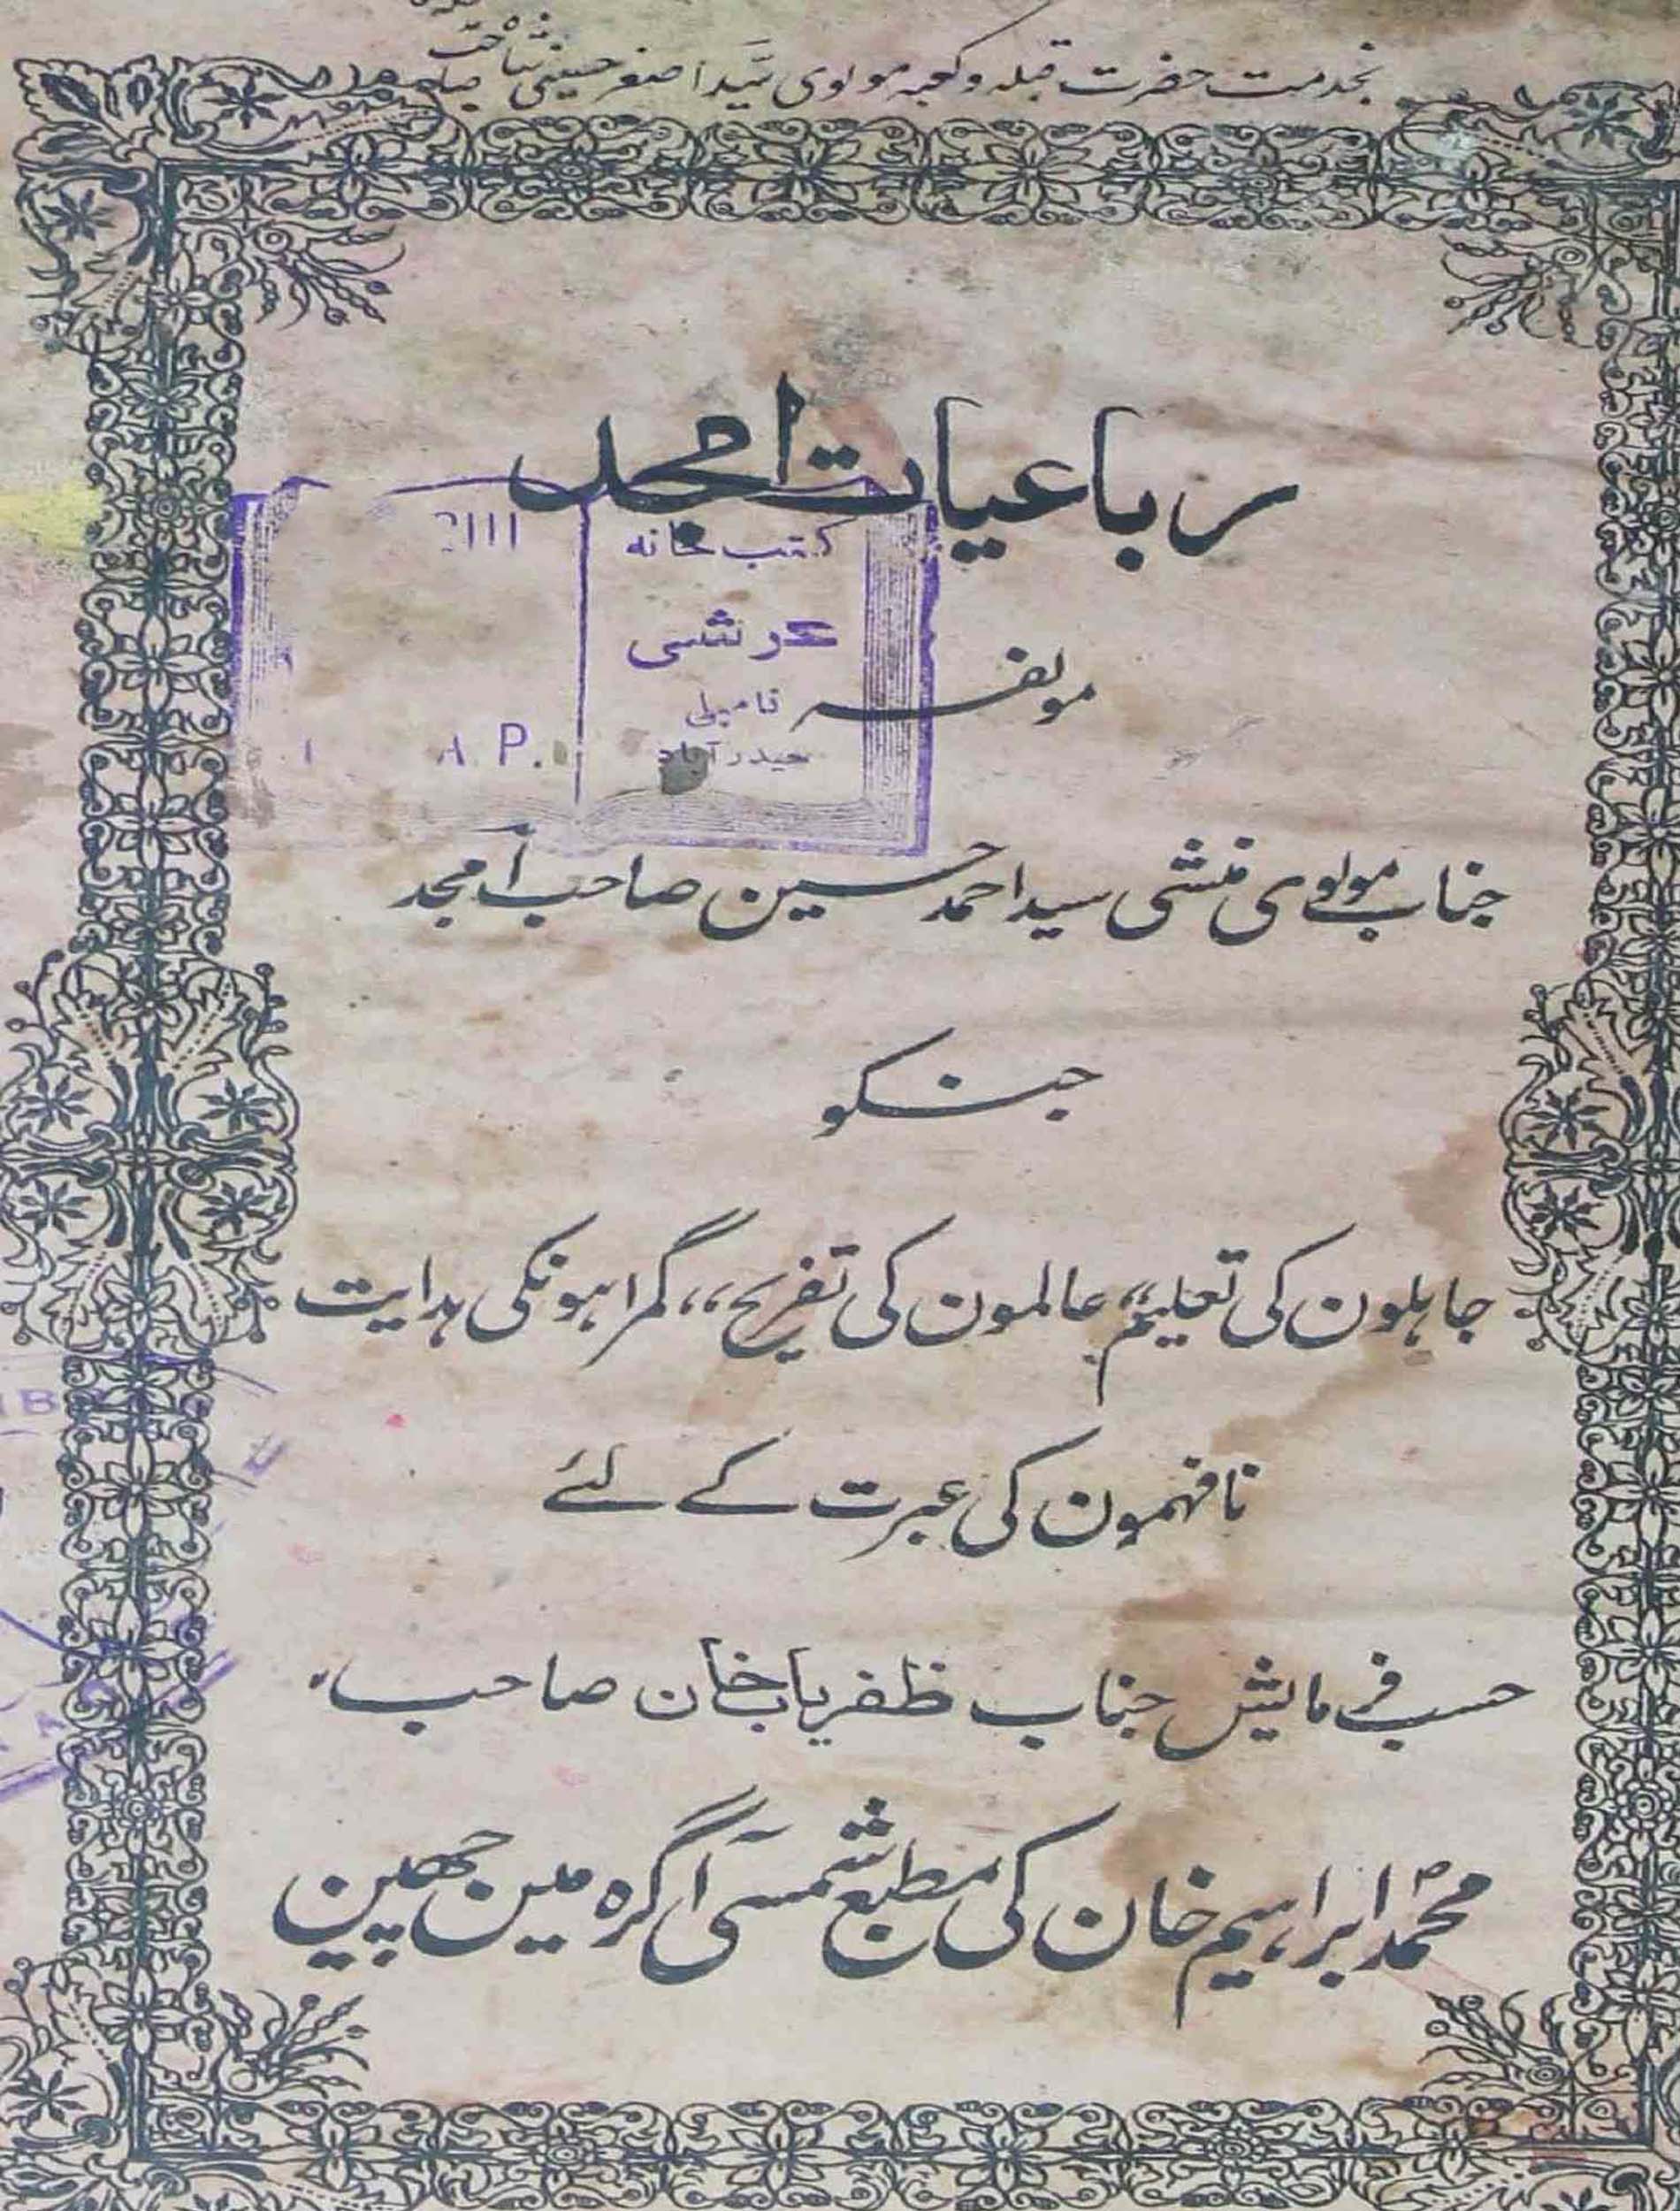 بخدمت حضرت قبلہ و کعبہ مولوی سید اصغر حسینی
رباعیات امجد
2111
کتب خانہ
نامپلی
حیدرآباد
A.P.
مولفہ
جناب مولوی منشی سید احمد حسین صاحب امجد
جنکو
جاہلون کی تعلیم،، عالمون کی تفریح،، گمراہونکی ہدایت
نافہمون کی عبرت کے لئے
حسب فرمایش جناب ظفریاب خان صاحب،
محمد ابراہیم خان کی مطبع شمسی آگرہ مین چھپین